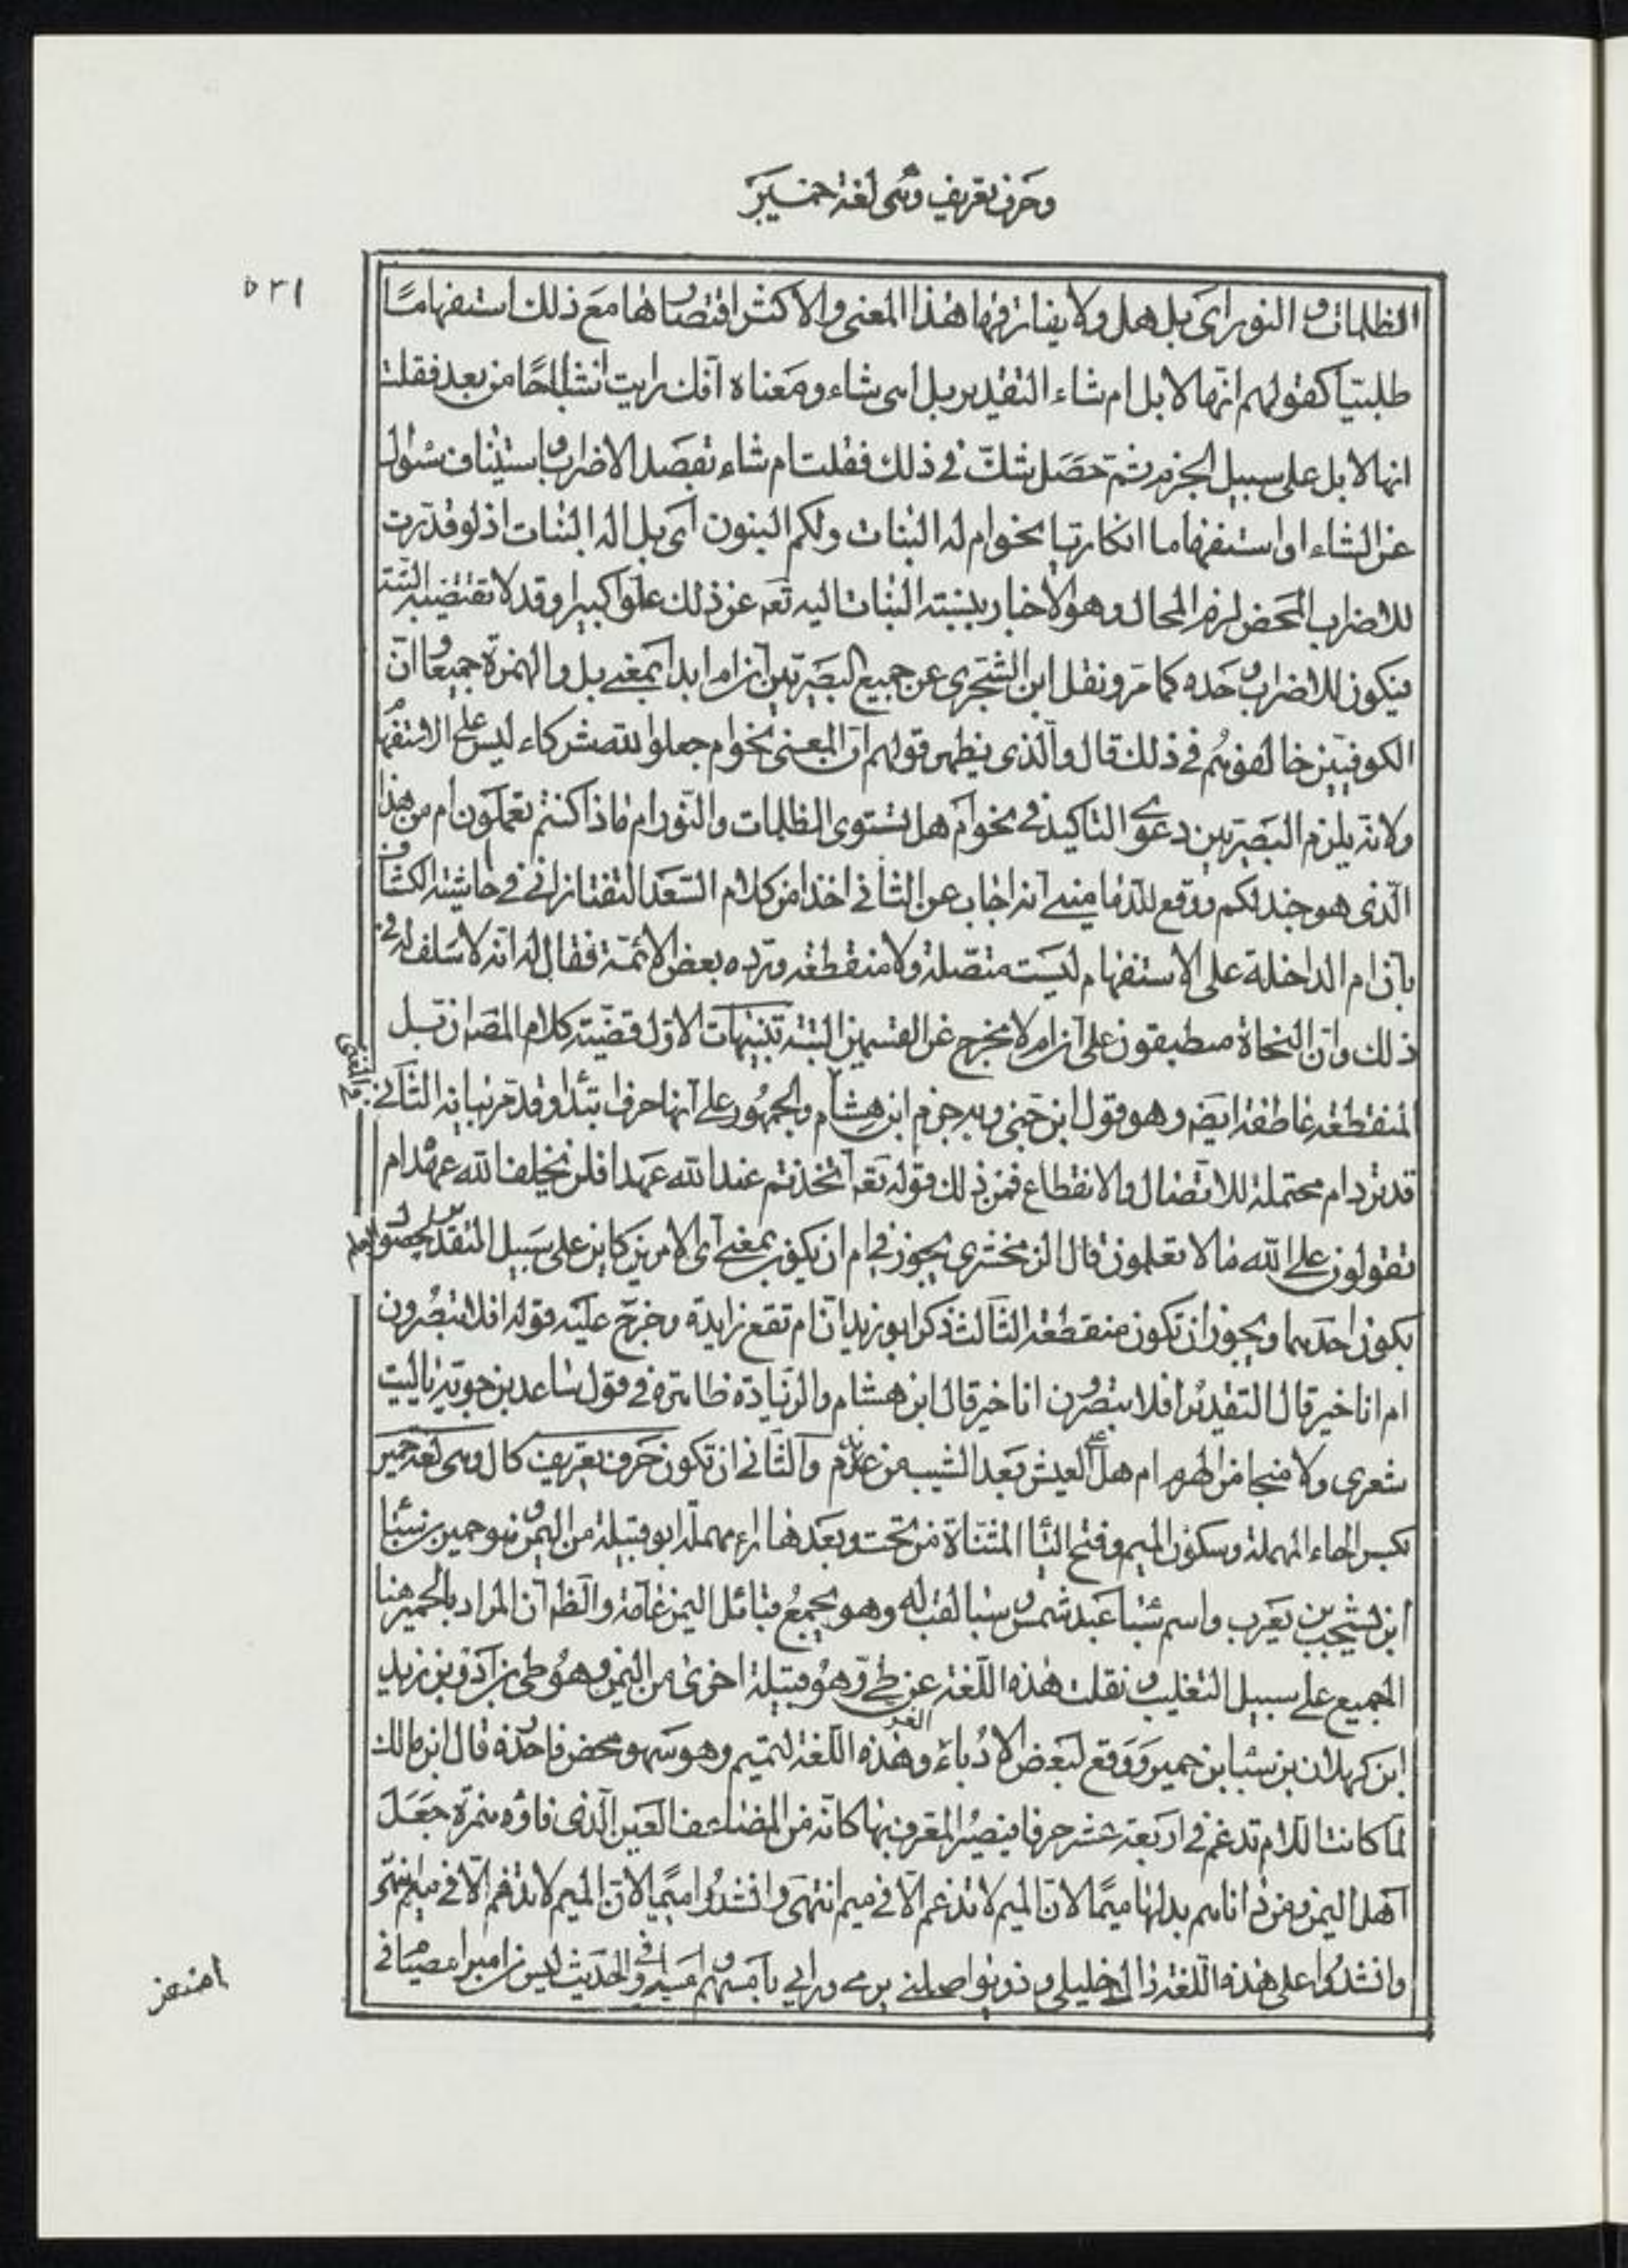 وحرف تعريف وهى لغة حمير
٥٣١
الظلمات والنور اى بل هل ولا يفارقها هذا المعنى والاكثر اقتضاؤها مع ذلك استفهاما
طلبيا كقولهم انها لابل ام شاء التقدير بل اهى شاء ومعناه انك رايت اشباحا من بعد فقلت
انها لابل على سبيل الجزم ثم حصل شك فى ذلك فقلت ام شاء تقصد الاضراب واستيناف سئوال
عن الشاء او استفهاما انكاريا نحو ام له البنات ولكم البنون اى بل اله البنات اذ لو قدرت
للاضراب المحض لزم المحال وهو الاخبار بنسبة البنات اليه تعه عن ذلك علوا كبيرا وقد لا تقتضيه البتة
فيكون للاضراب وحده كما مر ونقل ابن الشجرى عن جميع البصريين ان ام ابدا بمعنى بل والهمزة جميعا وان
الكوفيين خالفوهم فى ذلك قال والذى يظهر قولهم ان المعنى نحو ام جعلوا لله شركاء ليس على الاستفهام
ولانه يلزم البصريين دعوى التاكيد فى نحو ام هل تستوى الظلمات والنور ام ماذا كنتم تعملون ام من هذا
الذى هو جند لكم ووقع للدمامينى انه اجاب عن الثانى اخذا من كلام السعد التفتازانى فى حاشية الكشاف
بان ام الداخلة على الاستفهام ليست متصلة ولا منقطعة ورده بعض الائمة فقال له انه لا سلف له فى
ذلك وان النحاة مطبقون على ان ام لا تخرج عن القسمين البتة تنبيهات الاول قضية كلام المصه ان بل
المنقطعة عاطفة ايضه وهو قول ابن جنى وبه جزم ابن هشام والجمهور على انها حرف ابتداء وقد مر بيانه الثانى
قد ترد ام محتملة للاتصال والانقطاع فمن ذلك قوله تعه اتخذتم عند الله عهدا فلن يخلف الله عهده ام
تقولون على الله ما لا تعلمون قال الزمخشرى يجوز فى ام ان يكون بمعنى اى الامرين كاين على سبيل التقدير لحصول العلم
بكون احدهما ويجوز ان تكون منقطعة الثالث ذكر ابو زيد ان ام تقع زايدة وخرج عليه قوله افلا تبصرون
ام انا خير قال التقدير افلا تبصرون انا خير قال ابن هشام والزيادة ظاهرة فى قول ساعد بن جوية ياليت
شعرى ولا منجا من الهرم ام هل على العيش بعد الشيب من ندم والثانى ان تكون حرف تعريف كال وهى لغة حمير
بكسر الحاء المهملة وسكون الميم وفتح اليا المثناة من تحت وبعدها راء مهملة ابو قبيلة من اليمن وهو حمير بن سبا
ابن يشجب بن يعرب واسم سبا عبد شمس وسبا لقب له وهو يجمع قبائل اليمن عامة والظه ان المراد بالحمير هنا
الجميع على سبيل التغليب ونقلت هذه اللغة عن طى وهو قبيلة اخرى من اليمن وهو طى بن ادد بن زيد
ابن كهلان بن سبا بن حمير ووقع لبعض الادباء وهذه اللغة لتميم وهو سهو محض فاحذره قال ابن مالك
لما كانت اللام تدغم فى اربعة عشر حرفا فيصير المعرف بها كانه من المضاعف العين الذى فاؤه همزة جعل
اهل اليمن ومن داناهم بدلها ميما لان الميم لا تدغم الا فى ميم انتهى
وانشدوا على هذه اللغة ذاك خليلى وذو يواصلنى يرمى ورائى بامسهم وامسلمه وفى الحديث ليس من امبر امصيام فى
امسفر